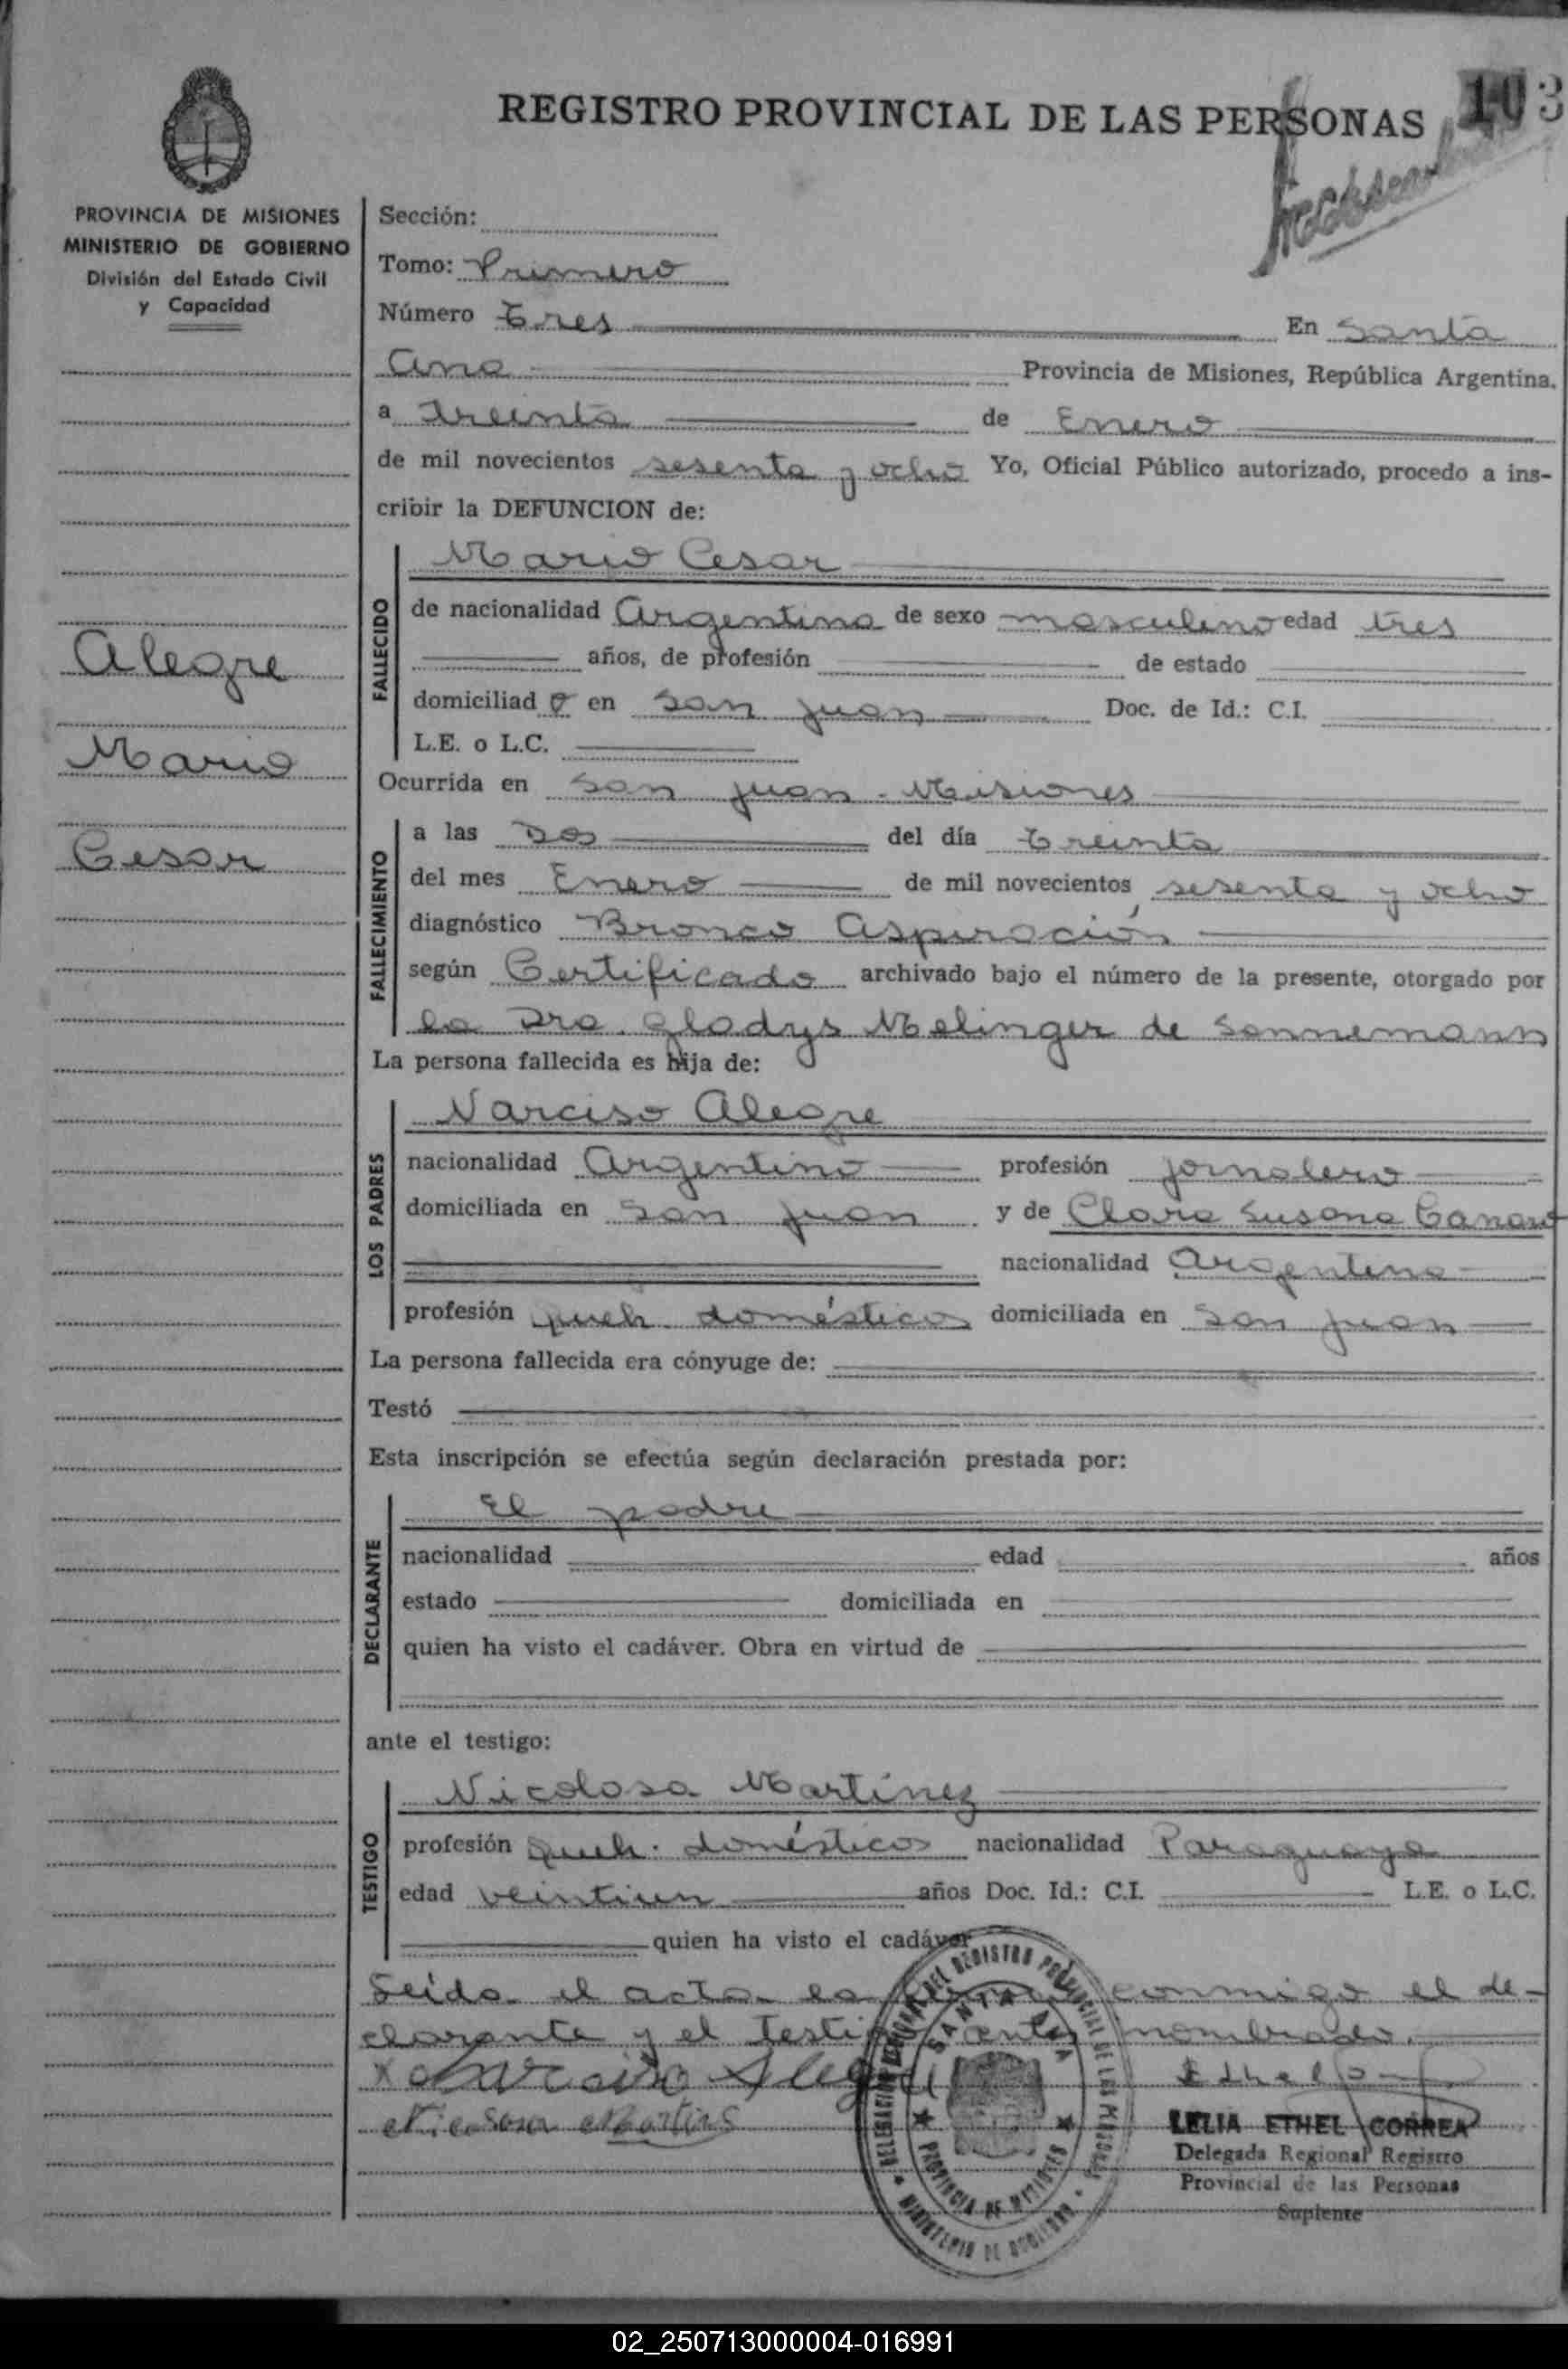 REGISTRO PROVINCIAL DE LAS PERSONAS
103
PROVINCIA DE MISIONES
MINISTERIO DE GOBIERNO
División del Estado Civil
y Capacidad
Alegre
Mario
Cesar
Sección:
Tomo: Primero
Número Tres En Santa
Ana Provincia de Misiones, República Argentina.
a Treinta de Enero
de mil novecientos sesenta y ocho Yo, Oficial Público autorizado, procedo a ins-
cribir la DEFUNCION de:
FALLECIDO
Mario Cesar
de nacionalidad Argentina de sexo masculino edad tres
años, de profesión de estado
domiciliad o en San Juan Doc. de Id.: C.I.
L.E. o L.C.
Ocurrida en San Juan - Misiones
FALLECIMIENTO
a las Dos del día Treinta
del mes Enero de mil novecientos sesenta y ocho
diagnóstico Bronco Aspiración
según Certificado archivado bajo el número de la presente, otorgado por
la Dra. Gladys Melinger de Sonnemann
La persona fallecida es hija de:
LOS PADRES
Narciso Alegre
nacionalidad Argentino profesión jornalero
domiciliada en San Juan y de Clara Susana
nacionalidad Argentina
profesión queh. domésticos domiciliada en San Juan
La persona fallecida era cónyuge de:
Testó
Esta inscripción se efectúa según declaración prestada por:
DECLARANTE
El padre
nacionalidad edad años
estado domiciliada en
quien ha visto el cadáver. Obra en virtud de
ante el testigo:
TESTIGO
Nicolasa Martínez
profesión queh. domésticos nacionalidad Paraguaya
edad veintiun años Doc. Id.: C.I. L.E. o L.C.
quien ha visto el cadáver
Leida el acta la conmigo el de-
clarante y el testigo antes nombrado.
x Narciso Alegre
LELIA ETHEL CORREA
Delegada Regional Registro
Provincial de las Personas
Suplente
DEL REGISTRO PROVINCIAL DE LAS PERSONAS
SANTA ANA
PROVINCIA DE MISIONES
MINISTERIO DE GOBIERNO
02_250713000004-016991